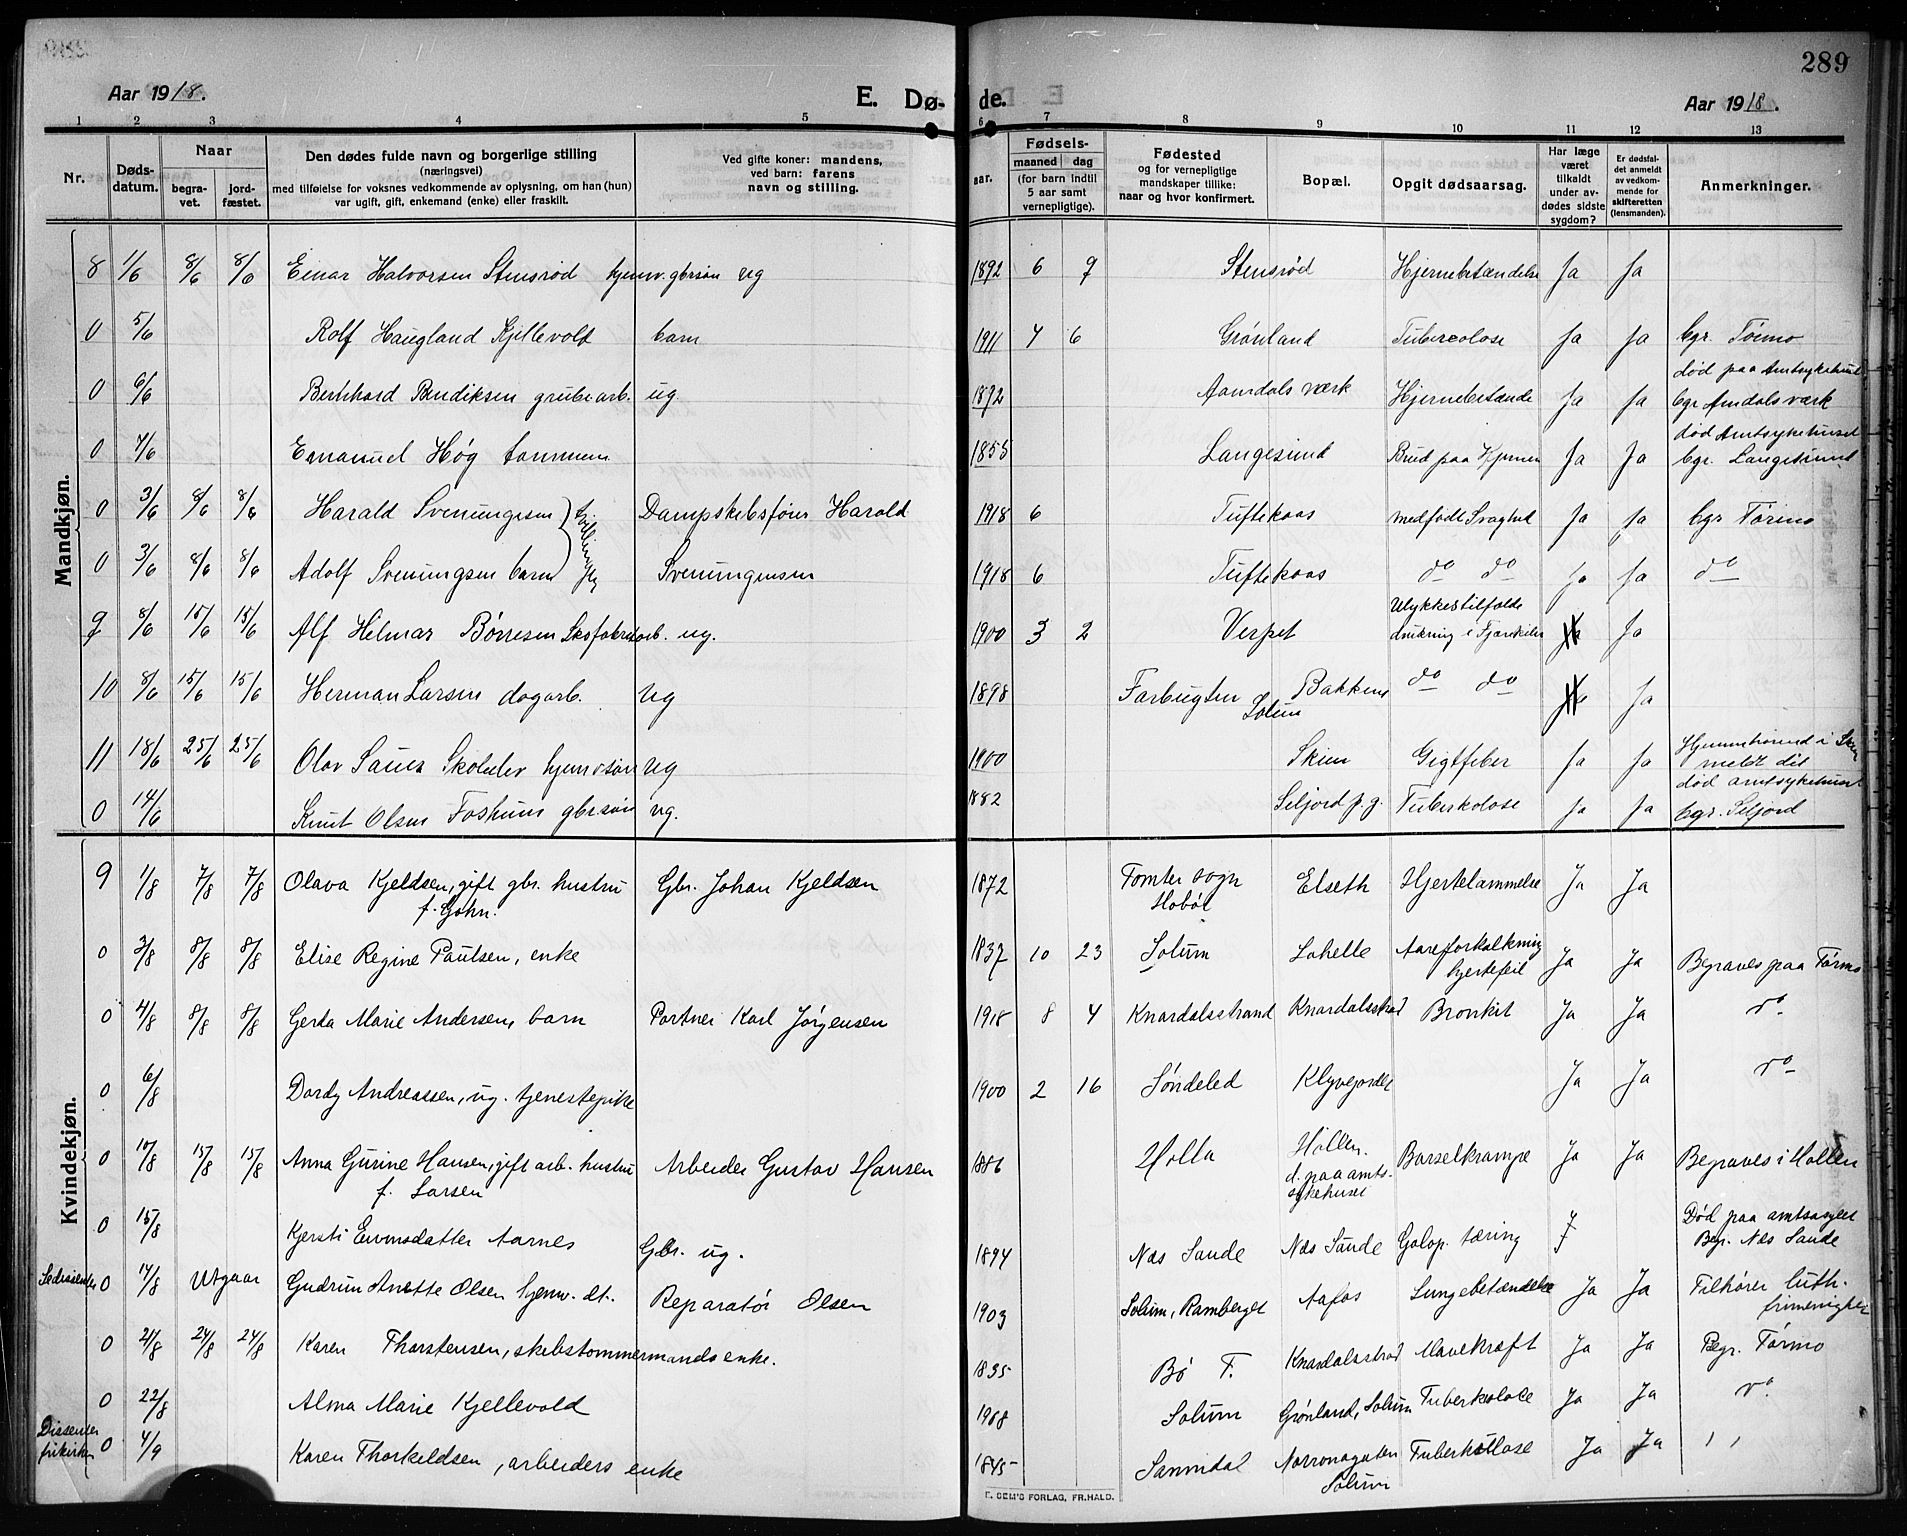 289
Aar 1918.
E. Dø-
de.
Aar 1918.
1 2 3 4 5 6 7 8 9 10 11 12 13
Nr.
Døds-
datum.
Naar
begra-
vet.
jord-
fæstet.
Den dødes fulde navn og borgerlige stilling
(næringsvei)
med tilføielse for voksnes vedkommende av oplysning, om han (hun)
var ugift, gift, enkemand (enke) eller fraskilt.
Ved gifte koner: mandens,
ved barn: farens
navn og stilling.
Fødsels-
aar.
maaned
dag
(for barn indtil
5 aar samt
vernepligtige).
Fødested
og for vernepligtige
mandskaper tillike:
naar og hvor konfirmert.
Bopæl.
Opgit dødsaarsag.
Har læge
været
tilkaldt
under av-
dødes sidste
sygdom?
Er dødsfal-
det anmeldt
av vedkom-
mende for
skifteretten
(lensmanden).
Anmerkninger.
Mandkjøn.
8 1/6 8/6 8/6 Einar Halvorsen Stensrød hjemv. gbrsøn ug 1892 6 9 Stensrød Hjernebetændelse Ja Ja
0 5/6 Rolf Haugland Kjellevold barn 1911 7 6 Grønland Tuberculose Ja Ja bgr. Tørmo
død paa Amtsykehuset
0 6/6 Bernhard Bendiksen grubearb. ug 1872 Aamdals værk Hjernebetænde Ja Ja bgr Amdals værk
død Amtsykehuset
0 7/6 Emanuel Høg 1855 Langesund Brud paa Hjernen Ja Ja bgr. Langesund
0 3/6 8/6 8/6 Harald Svenungsen Dampskibsfører Harald 1918 6 Tuftekaas medfødt Svaghed Ja Ja bgr Tørmo
Tvillinger
0 3/6 8/6 8/6 Adolf Svenungsen barn Svenungensen 1918 6 Tuftekaas do do Ja Ja do
Ulykkestilfælde
9 8/6 15/6 15/6 Alf Helmar Børresen Skofabrikarb. ug. 1900 3 2 Verpet drukning i Fjærekilen Ja
10 8/6 15/6 15/6 Herman Larsen dagarb. Ug 1898 Farbugten Solum Bakken do do Ja
11 18/6 25/6 25/6 Olav Sauer Skoleelev hjemv søn Ug 1900 Skien Gigtfeber Ja Ja Hjemmehørend i Skien
meldt dit
død amtsykehuset
0 14/6 Knut Olsen Foshuus gbrsøn ug. 1882 Seljord p.g. Tuberkolose Ja Ja bgr. Seljord
Kvindekjøn.
9 1/8 7/8 7/8 Olava Kjeldsen, gift gbr. hustru Gbr. Johan Kjeldsen 1872 Tomter sogn Elseth Hjertelammelse Ja Ja
f. Gohn. Hobøl
0 3/8 8/8 8/8 Elise Regine Paulsen, enke 1837 10 23 Solum Lohelle Aareforkalkning Ja Ja Begraves paa Tørmo
hjertefeil
0 4/8 8/8 8/8 Gerda Marie Andersen, barn Portner Karl Jørgensen 1918 8 4 Knardalsstrand Knardalsstrad Bronkit Ja Ja do
0 6/8 Dordy Andreassen, ug. tjenestepike 1900 2 16 Søndeled Klyvejordet Ja Ja do
0 10/8 15/8 15/8 Anna Gurine Hansen, gift arb. hustru Arbeider Gustav Hansen 1886 Holla Hollen. Barselkrampe Ja Ja Begraves i Hollen
f. Larsen d. paa amts-
sykehuset
0 15/8 Kjersti Evensdatter Aarnes Gbr. ug. 1894 Næs Saude Næs Saude Galop. tæring J Død paa amtssyget
Begr. Næs Saude
0 17/8 Utgaar Gudrun Anette Olsen hjemv. dt. Reparatør Olsen 1903 Solum, Ramberget Aafos Lungebetændelse Ja Ja Tilhører luth.
frimenighet
0 21/8 24/8 24/8 Karen Thorstensen, skibstommermands enke. 1835 Bø T. Knardalsstrad Mavekræft Ja Ja Begr. Tørmo
0 22/8 Alma Marie Kjellevold 1908 Solum Grønland, Solum Tuberkolose Ja Ja do
Dissenter
frikirken 0 4/9 Karen Thorkeldsen, arbeiders enke 1845 Sannidal Tuberkulose Ja Ja ' '
Solum
E. SEM'S FORLAG, FR.HALD.